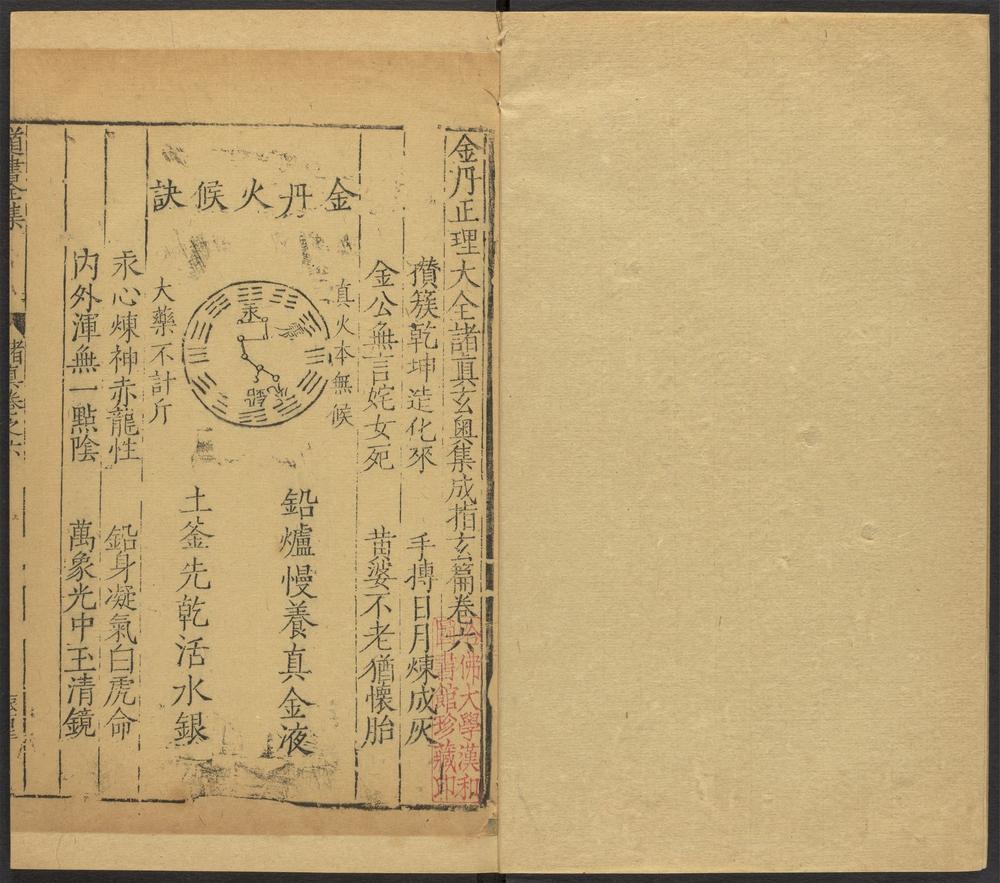 金丹正理大全諸真玄奧集成指玄篇卷六
哈佛大學漢和
圖書館珍藏印
攢簇乾坤造化來 手摶日月煉成灰
金公無言姹女死 黃婆不老猶懷胎
金丹火候訣
真火本無候
汞
鉛
大藥不計斤
鉛爐慢養真金液
土釜先乾活水銀
汞心煉神赤龍性 鉛身凝氣白虎命
內外渾無一點陰 萬象光中玉清鏡
道書全集
諸真卷之六